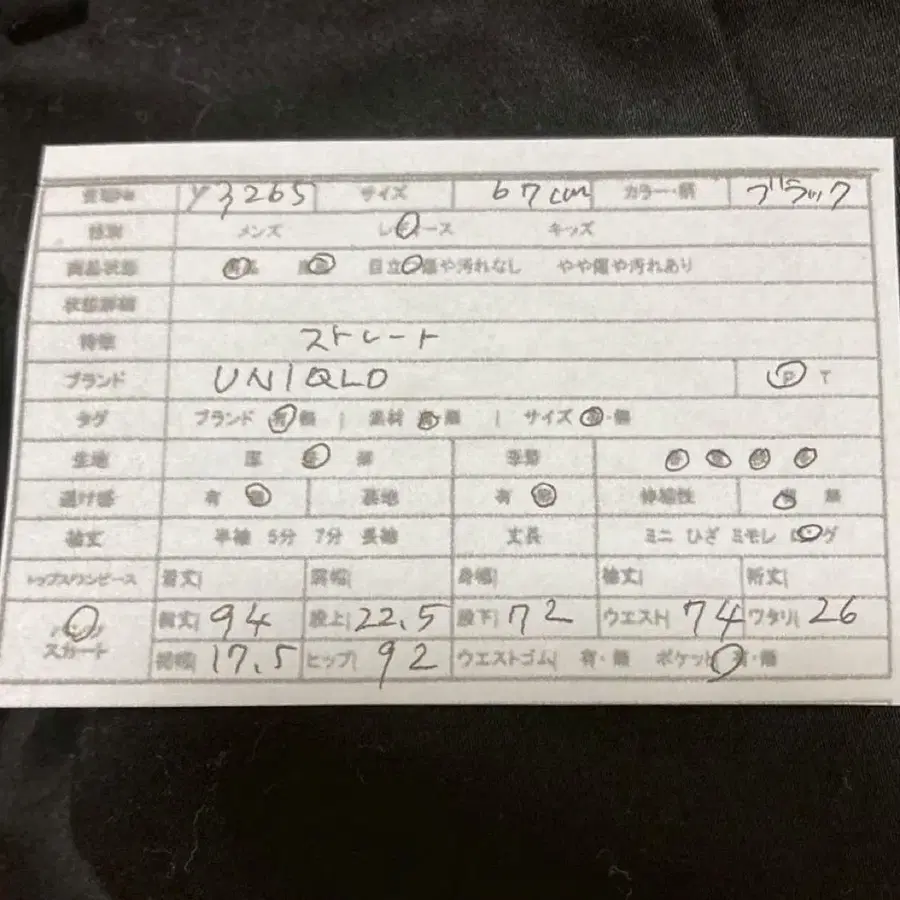 管理No Y3265 サイズ 67cm カラー・柄 ブラック
性別 メンズ レディース キッズ
商品状態 美品 良品 目立つ傷や汚れなし やや傷や汚れあり
状態詳細
特徴 ストレート
ブランド UNIQLO P T
タグ ブランド 有・無 | 素材 有・無 | サイズ 有・無
生地 厚 中 薄 季節 春 夏 秋 冬
透け感 有 無 裏地 有 無 伸縮性 有 無
袖丈 半袖 5分 7分 長袖 丈長 ミニ ひざ ミモレ ロング
トップス/ワンピース 着丈| 肩幅| 身幅| 袖丈| 裄丈|
パンツ/ 総丈| 94 股上| 22.5 股下| 72 ウエスト| 74 ワタリ| 26
スカート 裾幅| 17.5 ヒップ| 92 ウエストゴム| 有・無 ポケット| 有・無